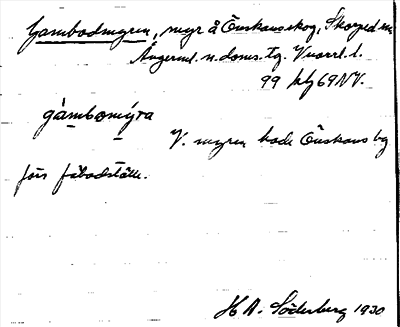 Gambodmyren, myr å Önskans skog, Skorped sn
Ångerml. n. doms. Tg. Vuorrl. 1.
99 hbg 69 NV.
gàmbomýra
V. myren hade Önskans bg
förs fäbodställe.
H A. Söderberg 1930